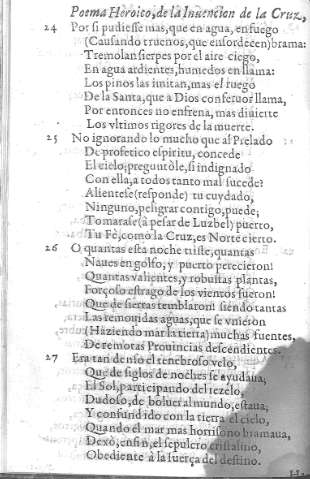 Poema Heroico, de la Inuencion de la Cruz,
24 Por si pudiesse mas, que en agua, en fuego
(Causando truenos, que ensordecen) brama:
Tremolan sierpes por el aire ciego,
En agua ardientes, humedos en llama:
Los pinos las imitan, mas el ruego
De la Santa, que a Dios conseruo llama,
Por entonces no enfrena, mas diuierte
Los vltimos rigores de la muerte.
25 No ignorando lo mucho que al Prelado
De profetico espiritu, concede
El cielo; preguntòle, si indignado
Con ella, a todos tanto mal sucede?
Alientese (responde) tu cuydado,
Ninguno, peligrar contigo, puede;
Tomaràse (à pesar de Luzbel) puerto,
Tu Fè, como la Cruz, es Norte cierto.
26 O quantas esta noche triste, quantas
Naues en golfo, y puerto perecieron!
Quantas valientes, y robustas plantas,
Forçoso estrago de los vientos fueron!
Que de sierras temblaron! siendo tantas
Las remouidas aguas, que se vnieron
(Haziendo mar la tierra) muchas fuentes,
De remotas Prouincias descendientes.
27 Era tan denso el tenebroso velo,
Que de siglos de noches se ayudaua,
El Sol, participando del rezelo,
Dudoso, de boluer al mundo, estaua;
Y confundido con la tierra el cielo,
Quando el mar mas horrisono bramaua,
Dexò, en fin, el sepulcro cristalino,
Obediente à la fuerça del destino.